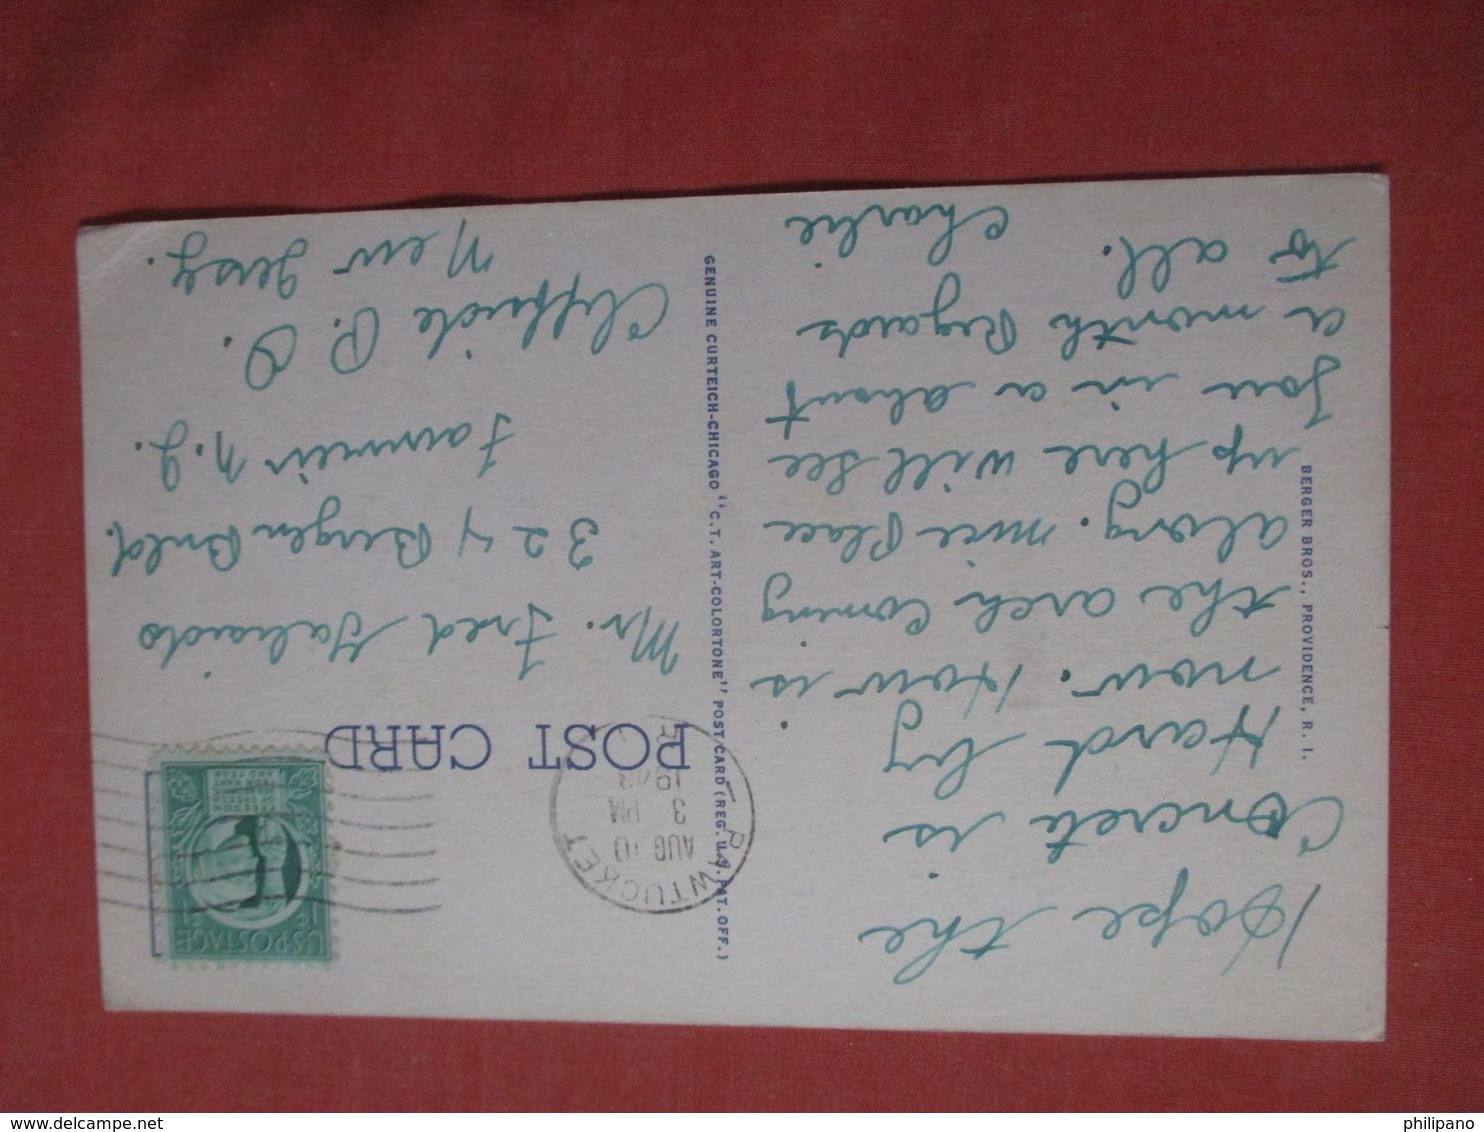 Hope the
Concrete is
Hard by
now. How is
the arch Coming
along. nice Place
up here will see
you in a about
a month Regards
to all.
Charlie
BERGER BROS., PROVIDENCE, R. I.
GENUINE CURTEICH-CHICAGO "C. T. ART-COLORTONE" POST CARD (REG. U.S. PAT. OFF.)
POST CARD
PAWTUCKET
AUG 10
3 PM
1943
R. I.
U.S. POSTAGE
1¢
FREEDOM
OF SPEECH
AND RELIGION
FROM WANT
AND FEAR
Mr. Fred
324 Bergen Buld.
Fairview N.J.
Cliffside P. O.
New Jersy.
philipano
delcampe.net